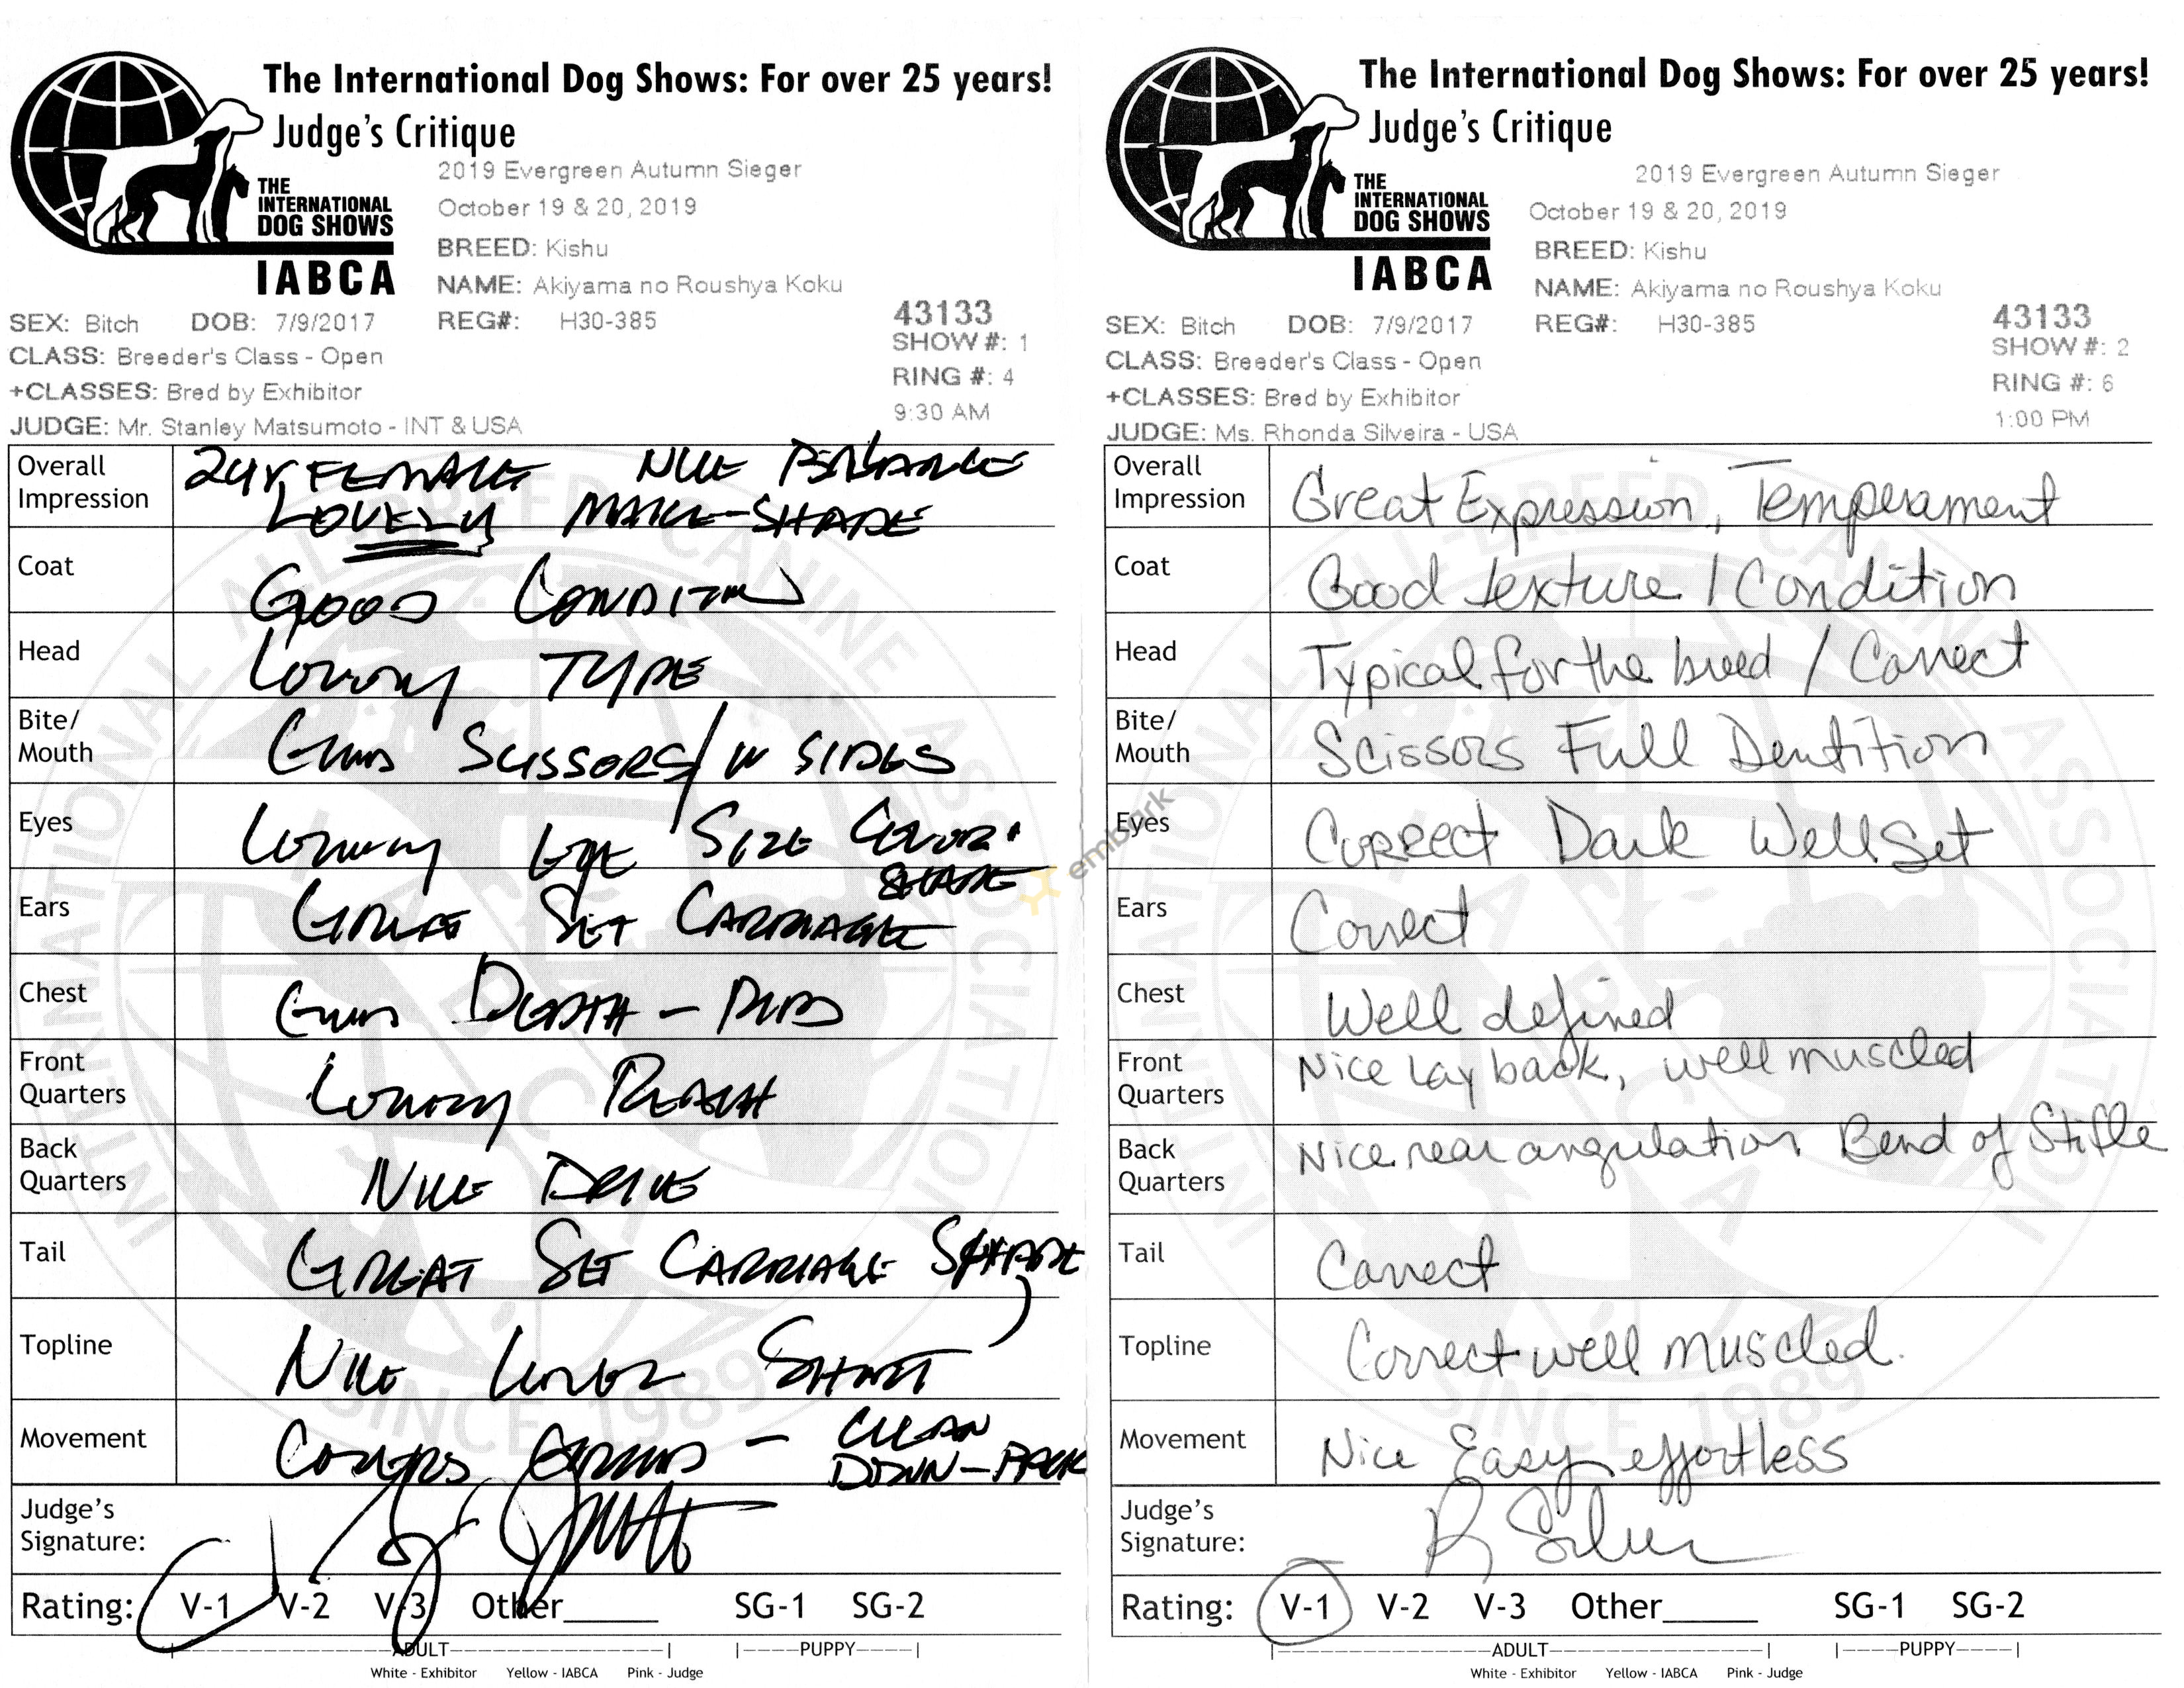 The International Dog Shows: For over 25 years!
Judge's Critique
2019 Evergreen Autumn Sieger
October 19 & 20, 2019
THE
INTERNATIONAL
DOG SHOWS
IABCA
BREED: Kishu
NAME: Akiyama no Roushya Koku
SEX: Bitch DOB: 7/9/2017 REG#: H30-385
43133
CLASS: Breeder's Class - Open
SHOW #: 1
+CLASSES: Bred by Exhibitor
RING #: 4
JUDGE: Mr. Stanley Matsumoto - INT & USA
9:30 AM
Overall Impression 2 yr FEMALE NICE BALANCE
LOVELY MAKE-SHAPE
Coat GOOD CONDITION
Head LOVELY TYPE
Bite/ Mouth GOOD SCISSORS/ W SIDES
Eyes LOVELY EYE SIZE COLOR
SHAPE
Ears GREAT SET CARRIAGE
Chest GOOD DEPTH - RIBS
Front Quarters LOVELY REACH
Back Quarters NICE DRIVE
Tail GREAT SET CARRIAGE SHAPE
Topline NICE LEVEL SHORT
Movement COVERS GROUND - CLEAN
DOWN-BACK
Judge's Signature:
Rating: V-1 V-2 V-3 Other_____ SG-1 SG-2
ADULT PUPPY
White - Exhibitor Yellow - IABCA Pink - Judge
INTERNATIONAL ALL-BREED CANINE ASSOCIATION
IABCA
SINCE 1989
embark
The International Dog Shows: For over 25 years!
Judge's Critique
2019 Evergreen Autumn Sieger
October 19 & 20, 2019
THE
INTERNATIONAL
DOG SHOWS
IABCA
BREED: Kishu
NAME: Akiyama no Roushya Koku
SEX: Bitch DOB: 7/9/2017 REG#: H30-385
43133
CLASS: Breeder's Class - Open
SHOW #: 2
+CLASSES: Bred by Exhibitor
RING #: 6
JUDGE: Ms. Rhonda Silveira - USA
1:00 PM
Overall Impression Great Expression, Temperament
Coat Good texture / Condition
Head Typical for the breed / Correct
Bite/ Mouth Scissors Full Dentition
Eyes Correct Dark Well Set
Ears Correct
Chest Well defined
Front Quarters Nice lay back, well muscled
Back Quarters Nice rear angulation Bend of Stifle
Tail Correct
Topline Correct well muscled.
Movement Nice Easy effortless
Judge's Signature: R Silver
Rating: V-1 V-2 V-3 Other_____ SG-1 SG-2
ADULT PUPPY
White - Exhibitor Yellow - IABCA Pink - Judge
INTERNATIONAL ALL-BREED CANINE ASSOCIATION
IABCA
SINCE 1989